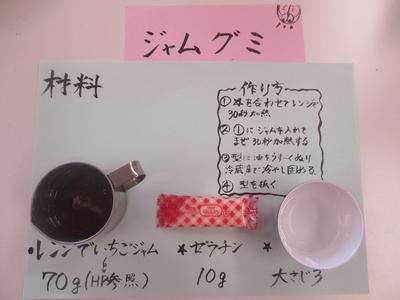 ジャムグミ
材料
作り方
①★を合わせてレンジで
30秒加熱
②①にジャムを入れて
まぜ30秒加熱する
③型に油をうすくぬり
冷蔵庫で冷やし固める
④型を抜く
・レンジでいちごジャム
70g(HP参照)
★ゼラチン
10g
★
大さじ3